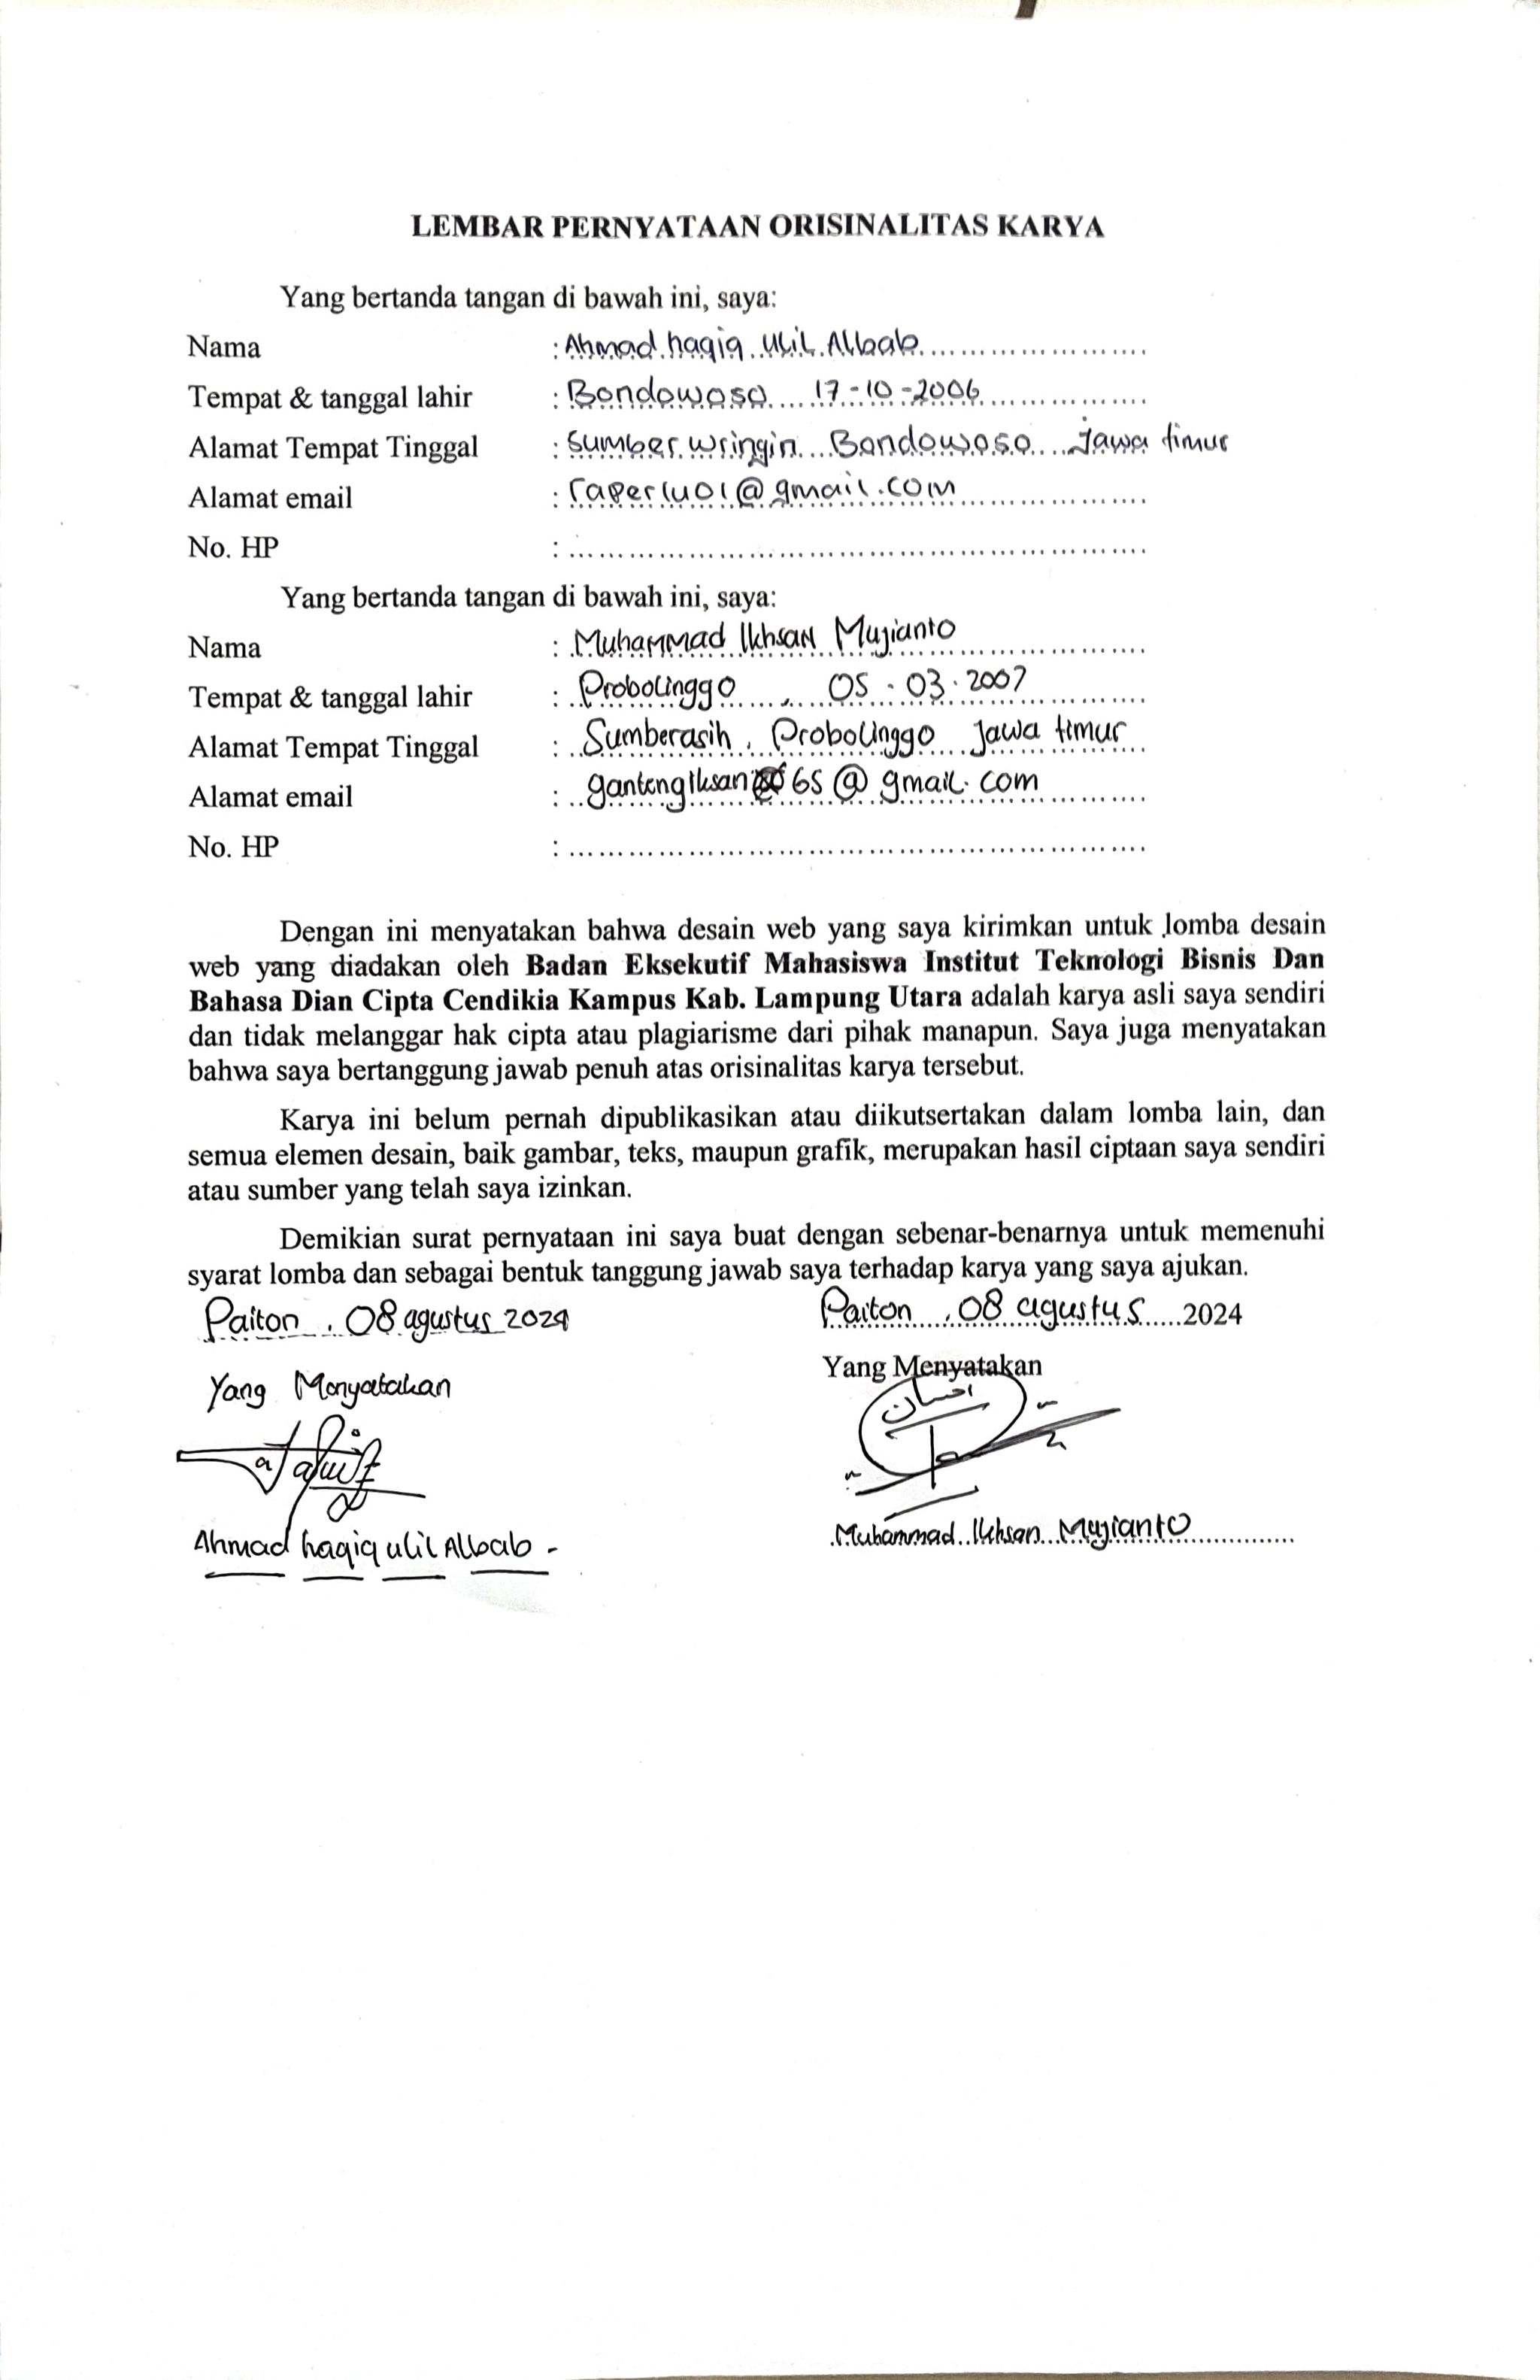 LEMBAR PERNYATAAN ORISINALITAS KARYA
Yang bertanda tangan di bawah ini, saya:
Nama : Ahmad haqiq ulil Albab
Tempat & tanggal lahir : Bondowoso 17-10-2006
Alamat Tempat Tinggal : Sumber wringin Bondowoso Jawa timur
Alamat email : @gmail.com
No. HP :
Yang bertanda tangan di bawah ini, saya:
Nama : Muhammad Ikhsan Mujianto
Tempat & tanggal lahir : Probolinggo, 05.03.2007
Alamat Tempat Tinggal : Sumberasih, Probolinggo Jawa timur
Alamat email : gantengiksan65@gmail.com
No. HP :
Dengan ini menyatakan bahwa desain web yang saya kirimkan untuk lomba desain
web yang diadakan oleh Badan Eksekutif Mahasiswa Institut Teknologi Bisnis Dan
Bahasa Dian Cipta Cendikia Kampus Kab. Lampung Utara adalah karya asli saya sendiri
dan tidak melanggar hak cipta atau plagiarisme dari pihak manapun. Saya juga menyatakan
bahwa saya bertanggung jawab penuh atas orisinalitas karya tersebut.
Karya ini belum pernah dipublikasikan atau diikutsertakan dalam lomba lain, dan
semua elemen desain, baik gambar, teks, maupun grafik, merupakan hasil ciptaan saya sendiri
atau sumber yang telah saya izinkan.
Demikian surat pernyataan ini saya buat dengan sebenar-benarnya untuk memenuhi
syarat lomba dan sebagai bentuk tanggung jawab saya terhadap karya yang saya ajukan.
Paiton, 08 agustus 2024 Paiton, 08 agustus 2024
Yang Menyatakan Yang Menyatakan
احسان
Ahmad haqiq ulil Albab - Muhammad Ikhsan Mujianto